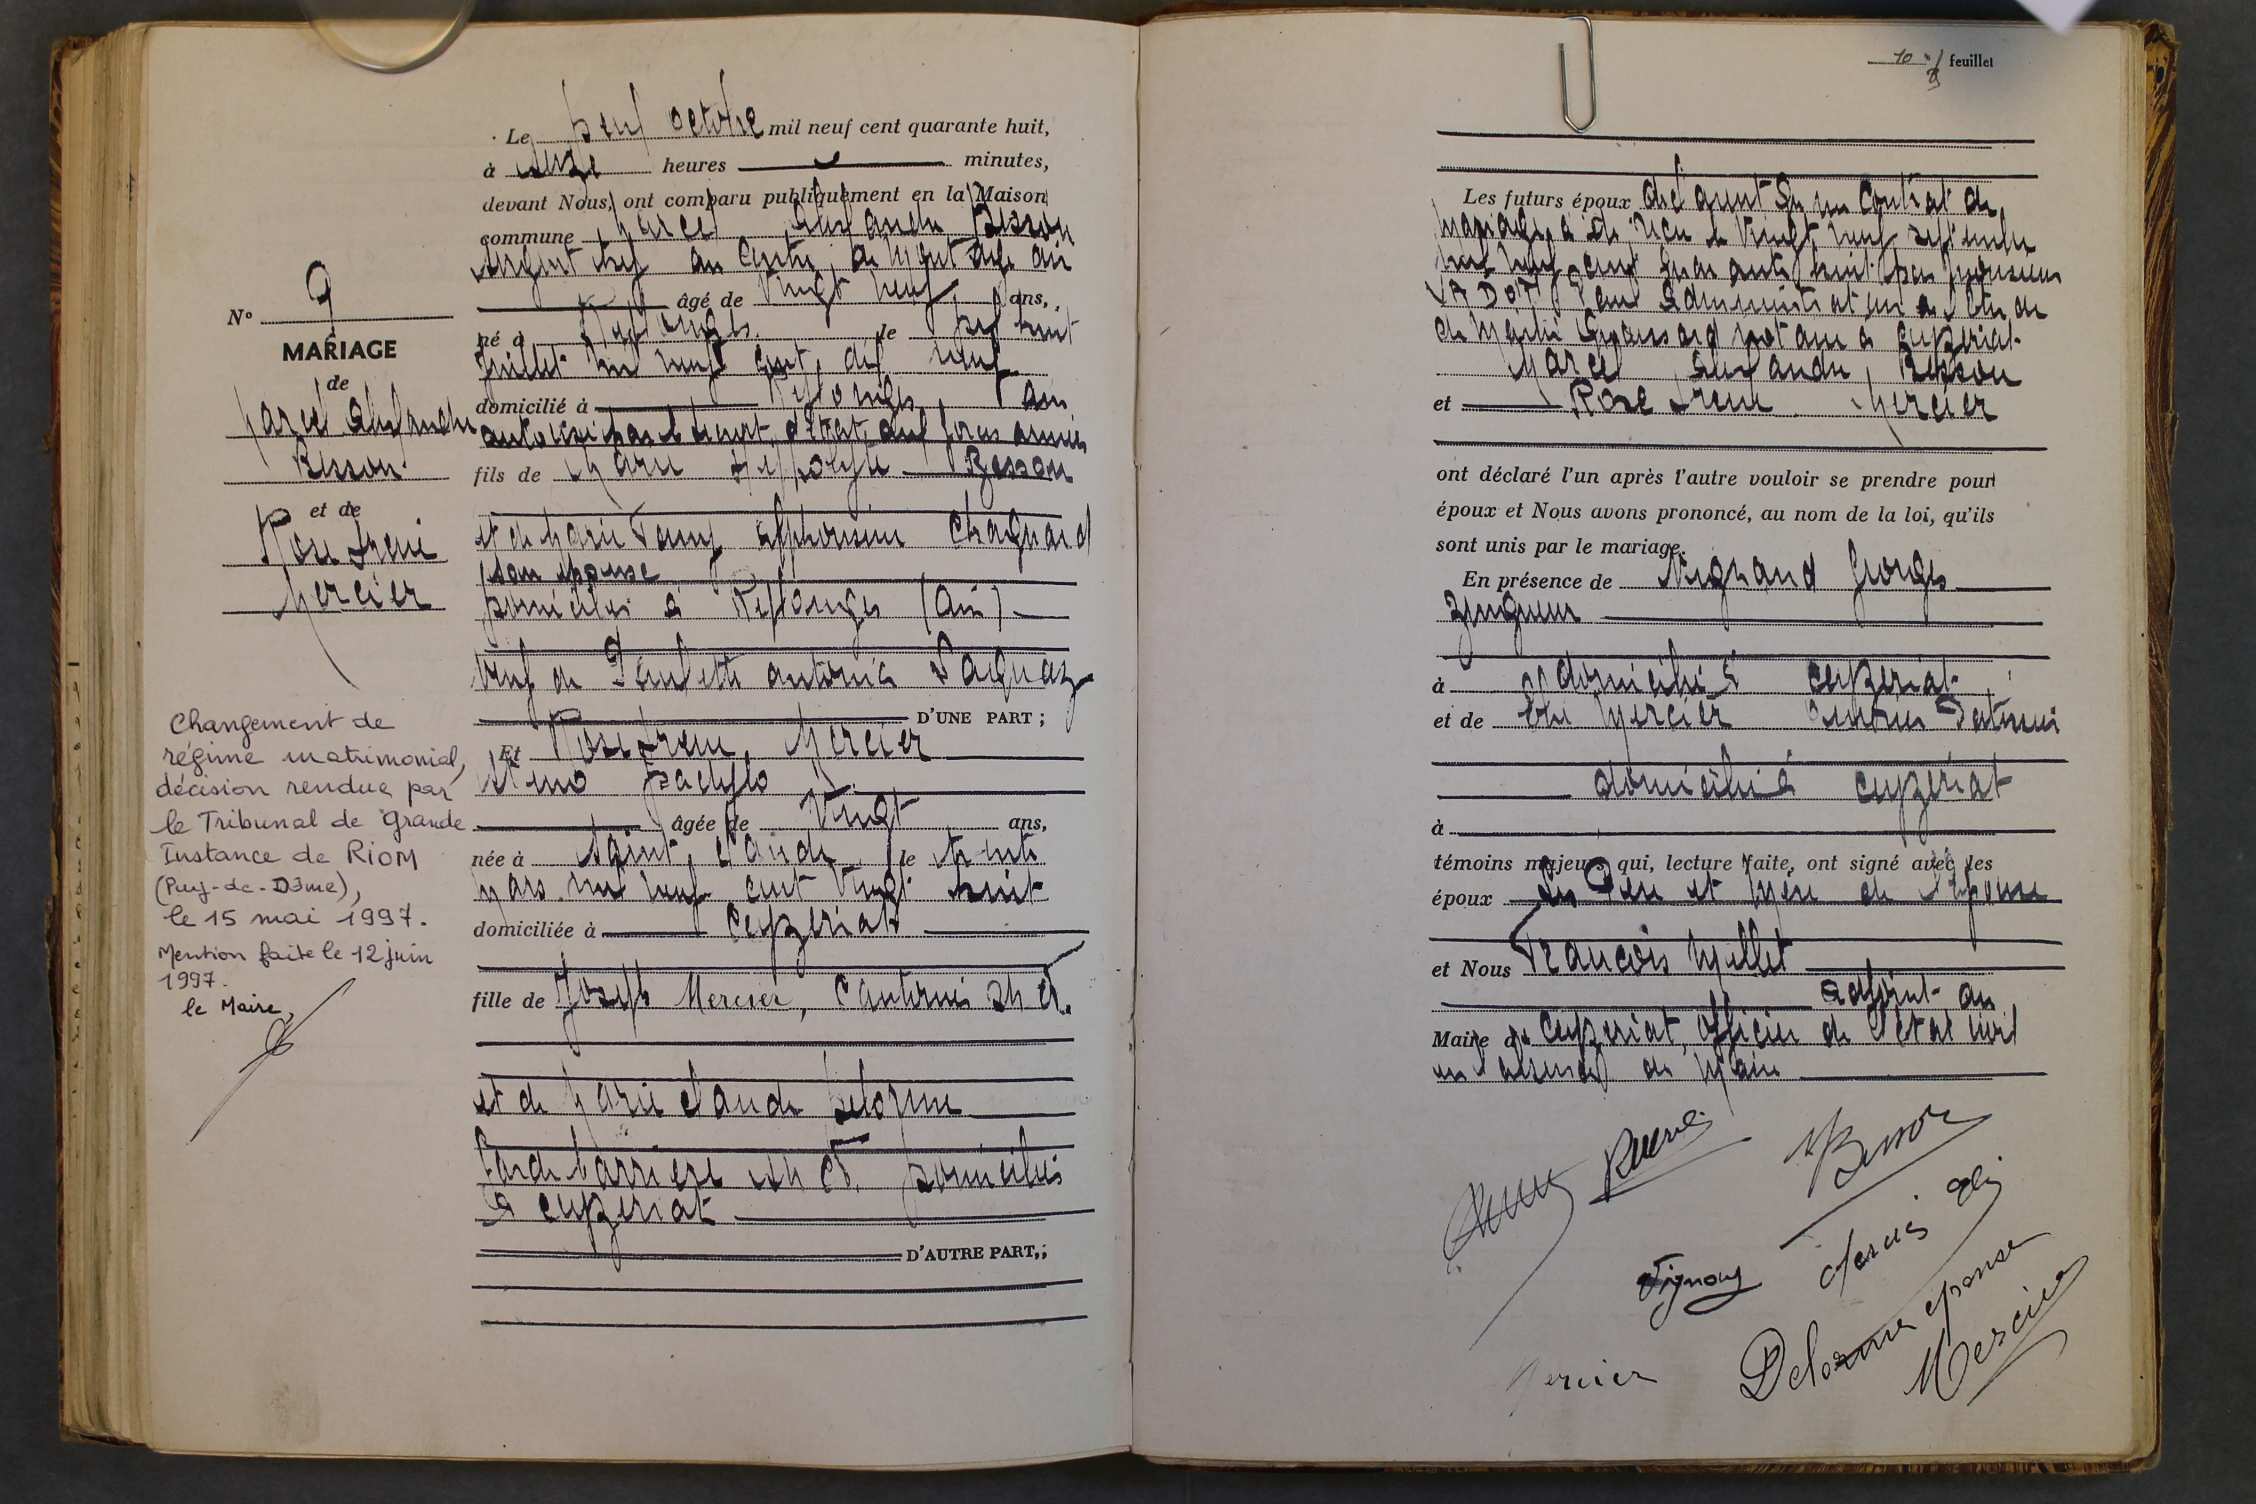 N° 9
MARIAGE
de
Marcel Alexandre
Besson
et de
Rose Irène
Mercier
Changement de
régime matrimonial,
décision rendue par
le Tribunal de Grande
Instance de RIOM
(Puy-de-Dôme),
le 15 mai 1997.
Mention faite le 12 juin
1997.
le Maire,
Le neuf octobre mil neuf cent quarante huit,
à heures minutes,
devant Nous, ont comparu publiquement en la Maison
commune Marcel Alexandre Besson
sergent chef au Centre de
âgé de vingt neuf ans,
né à le dix huit
juillet mil neuf cent dix neuf
domicilié à Ain
fils de Marie Hippolyte Besson
et de Marie Fanny Alphonsine Chagnard
son épouse
domiciliés à (Ain)
veuf de Paulette Antonia
D'UNE PART ;
Et Rose Irène Mercier
sténo dactylo
âgée de vingt ans,
née à Saint Claude le trente
Mars mil neuf cent vingt huit
domiciliée à Ceyzériat
fille de Joseph Mercier, Cantonnier
et de Marie Claude Delorme
Garde barrière domiciliés
à Ceyzériat
D'AUTRE PART,;
10 feuillet
Les futurs époux déclarent qu'un contrat de
mariage a été reçu le vingt neuf septembre
mil neuf cent quarante huit par Monsieur
VADOT administrateur de l'étude
de Maître notaire à Ceyzériat
Marcel Alexandre Besson
et Rose Irène Mercier
ont déclaré l'un après l'autre vouloir se prendre pour
époux et Nous avons prononcé, au nom de la loi, qu'ils
sont unis par le mariage.
En présence de Vignand Georges
zingueur
à domicilié à Ceyzériat
et de Mercier
domicilié à Ceyzériat
à
témoins majeurs qui, lecture faite, ont signé avec les
époux les Père et Mère de l'épouse
et Nous François Millet
adjoint au
Maire de Ceyzériat, officier de l'état civil
en l'absence du Maire
Besson
Mercier
Delorme épouse
Mercier